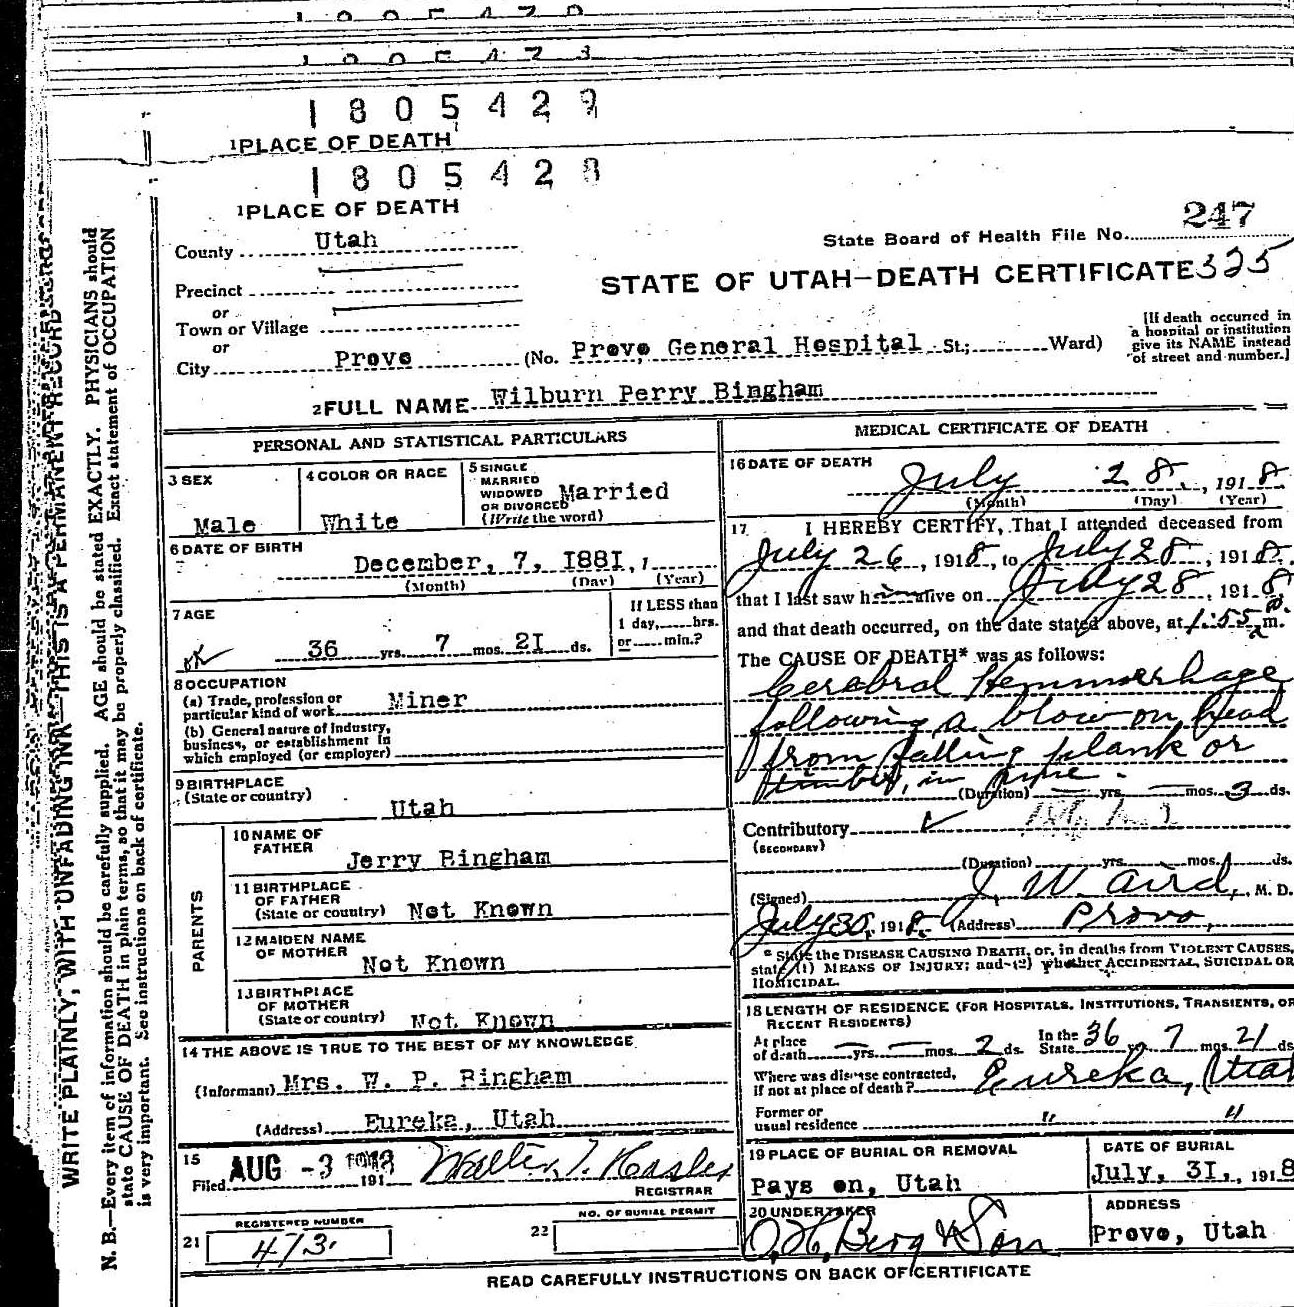 1805429
1 PLACE OF DEATH
1805428
1 PLACE OF DEATH
County Utah
Precinct
or
Town or Village
or
City Provo (No. Provo General Hospital St.; Ward)
State Board of Health File No. 247
STATE OF UTAH—DEATH CERTIFICATE 325
[If death occurred in
a hospital or institution
give its NAME instead
of street and number.]
2 FULL NAME Wilburn Perry Bingham
PERSONAL AND STATISTICAL PARTICULARS
3 SEX
Male
4 COLOR OR RACE
White
5 SINGLE
MARRIED
WIDOWED
OR DIVORCED
(Write the word)
Married
6 DATE OF BIRTH
December, 7, I88I, 1
(Month) (Day) (Year)
7 AGE
ok 36 yrs. 7 mos. 2I ds.
If LESS than
1 day, hrs.
or min.?
8 OCCUPATION
(a) Trade, profession or
particular kind of work Miner
(b) General nature of industry,
business, or establishment in
which employed (or employer)
9 BIRTHPLACE
(State or country)
Utah
PARENTS
10 NAME OF
FATHER
Jerry Bingham
11 BIRTHPLACE
OF FATHER
(State or country) Not Known
12 MAIDEN NAME
OF MOTHER
Not Known
13 BIRTHPLACE
OF MOTHER
(State or country) Not Known
14 THE ABOVE IS TRUE TO THE BEST OF MY KNOWLEDGE
(Informant) Mrs. W. P. Bingham
(Address) Eureka, Utah
15
Filed AUG -3 1918 191
REGISTRAR
REGISTERED NUMBER
21 473.
NO. OF BURIAL PERMIT
22
MEDICAL CERTIFICATE OF DEATH
16 DATE OF DEATH
July 28, 1918
(Month) (Day) (Year)
17 I HEREBY CERTIFY, That I attended deceased from
July 26, 1918, to July 28, 1918.
that I last saw him alive on July 28, 1918,
and that death occurred, on the date stated above, at 1:55 a m.
The CAUSE OF DEATH* was as follows:
Cerebral Hemmorrhage
following a blow on head
from falling plank or
timber, in mine.
(Duration) — yrs. — mos. 3 ds.
Contributory
(SECONDARY)
(Duration) yrs. mos. ds.
(Signed) J. W. Aird, M. D.
July 30, 1918. (Address) Provo,
* State the DISEASE CAUSING DEATH, or, in deaths from VIOLENT CAUSES,
state (1) MEANS OF INJURY; and (2) whether ACCIDENTAL, SUICIDAL OR
HOMICIDAL.
18 LENGTH OF RESIDENCE (FOR HOSPITALS, INSTITUTIONS, TRANSIENTS, OR
RECENT RESIDENTS)
At place
of death — yrs. — mos. 2 ds. In the State 36 yrs. 7 mos. 21 ds
Where was disease contracted,
if not at place of death? Eureka, Utah
Former or
usual residence " "
19 PLACE OF BURIAL OR REMOVAL
Pays on, Utah
DATE OF BURIAL
July, 3I, , 1918
20 UNDERTAKER
O. H. Berg & Son
ADDRESS
Provo, Utah
READ CAREFULLY INSTRUCTIONS ON BACK OF CERTIFICATE
WRITE PLAINLY, WITH UNFADING INK—THIS IS A PERMANENT RECORD
N. B.—Every item of information should be carefully supplied. AGE should be stated EXACTLY. PHYSICIANS should
state CAUSE OF DEATH in plain terms, so that it may be properly classified. Exact statement of OCCUPATION
is very important. See instructions on back of certificate.